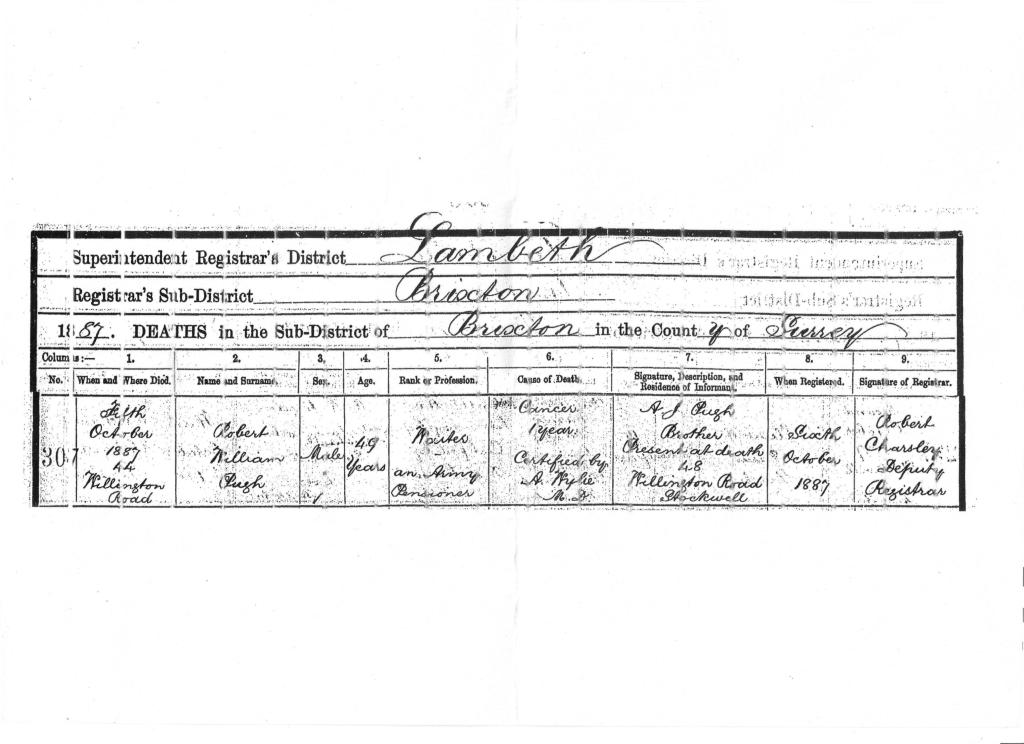 Superintendent Registrar's District Lambeth
Registrar's Sub-District Brixton
1887. DEATHS in the Sub-District of Brixton in the County of Surrey
Columns:— 1. 2. 3. 4. 5. 6. 7. 8. 9.
No. When and Where Died. Name and Surname. Sex. Age. Rank or Profession. Cause of Death. Signature, Description, and Residence of Informant. When Registered. Signature of Registrar.
307
Fifth
October
1887
44
Willington
Road
Robert
William
Pugh
Male
49
Years
Waiter
an Army
Pensioner
Cancer
1 Year
Certified by
A. Wylie
M.D.
A J Pugh
Brother
Present at death
48
Willington Road
Stockwell
Sixth
October
1887
Robert
Charsley
Deputy
Registrar